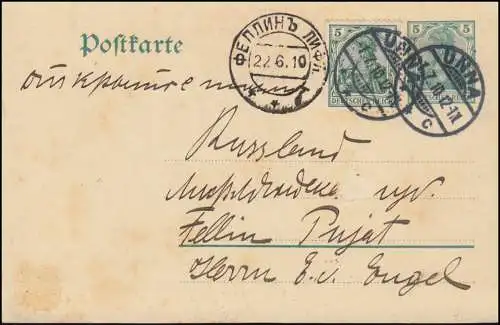 Postkarte
ФЕЛЛИНЪ ЛИФЛ.
22.6.10
5
DEUTSCHES REICH
5 5
UNNA
UNNA
c
открытое письмо
Russland
Fellin Pujat
Herrn E. v. Engel